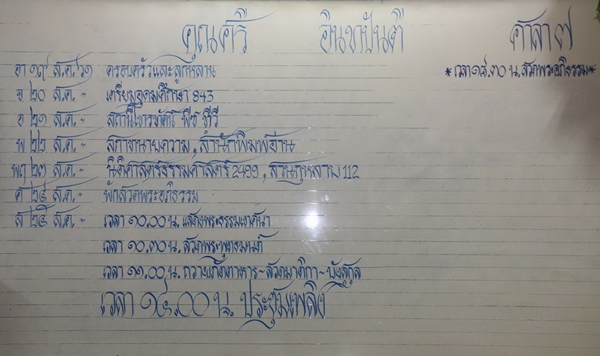 คุณศรี อินทปันตี ศาลา ๗
อา ๑๙ ส.ค.๖๑ ครอบครัวและลูกหลาน *เวลา ๑๘.๓๐ น. สวดพระอภิธรรม*
จ ๒๐ ส.ค. - เตรียมอุดมศึกษา 843
อ ๒๑ ส.ค. - สถานีโทรทัศน์ พีซ ทีวี
พ ๒๒ ส.ค. - สภาทนายความ, สำนักพิมพ์อ่าน
พฤ ๒๓ ส.ค. - นิติศาสตร์ธรรมศาสตร์ 2499, ลานกุหลาบ 112
ศ ๒๔ ส.ค. - พักสวดพระอภิธรรม
ส ๒๕ ส.ค. - เวลา ๑๐.๐๐ น. แสดงพระธรรมเทศนา
เวลา ๑๐.๓๐ น. สวดพระพุทธมนต์
เวลา ๑๑.๐๐ น. ถวายภัตตาหาร~สวดมาติกา~บังสุกุล
เวลา ๑๔.๐๐ น. ประชุมเพลิง